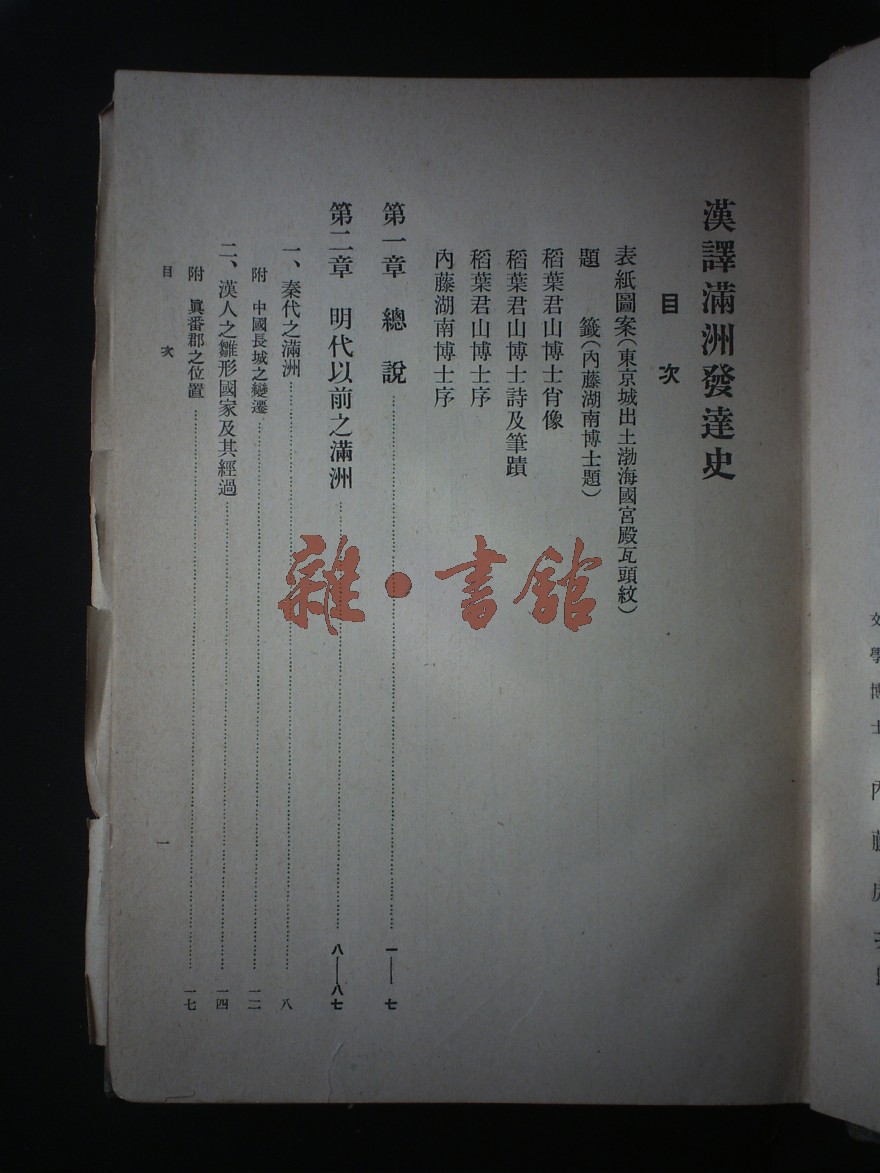 漢譯滿洲發達史
目次
表紙圖案(東京城出土渤海國宮殿瓦頭紋)
題 籤(內藤湖南博士題)
稻葉君山博士肖像
稻葉君山博士詩及筆蹟
稻葉君山博士序
內藤湖南博士序
第一章 總說 一——七
第二章 明代以前之滿洲 八——八七
一、秦代之滿洲 八
附 中國長城之變遷 一二
二、漢人之雛形國家及其經過 一四
附 眞番郡之位置 一七
目次
一
雜·書館
學博士 內藤